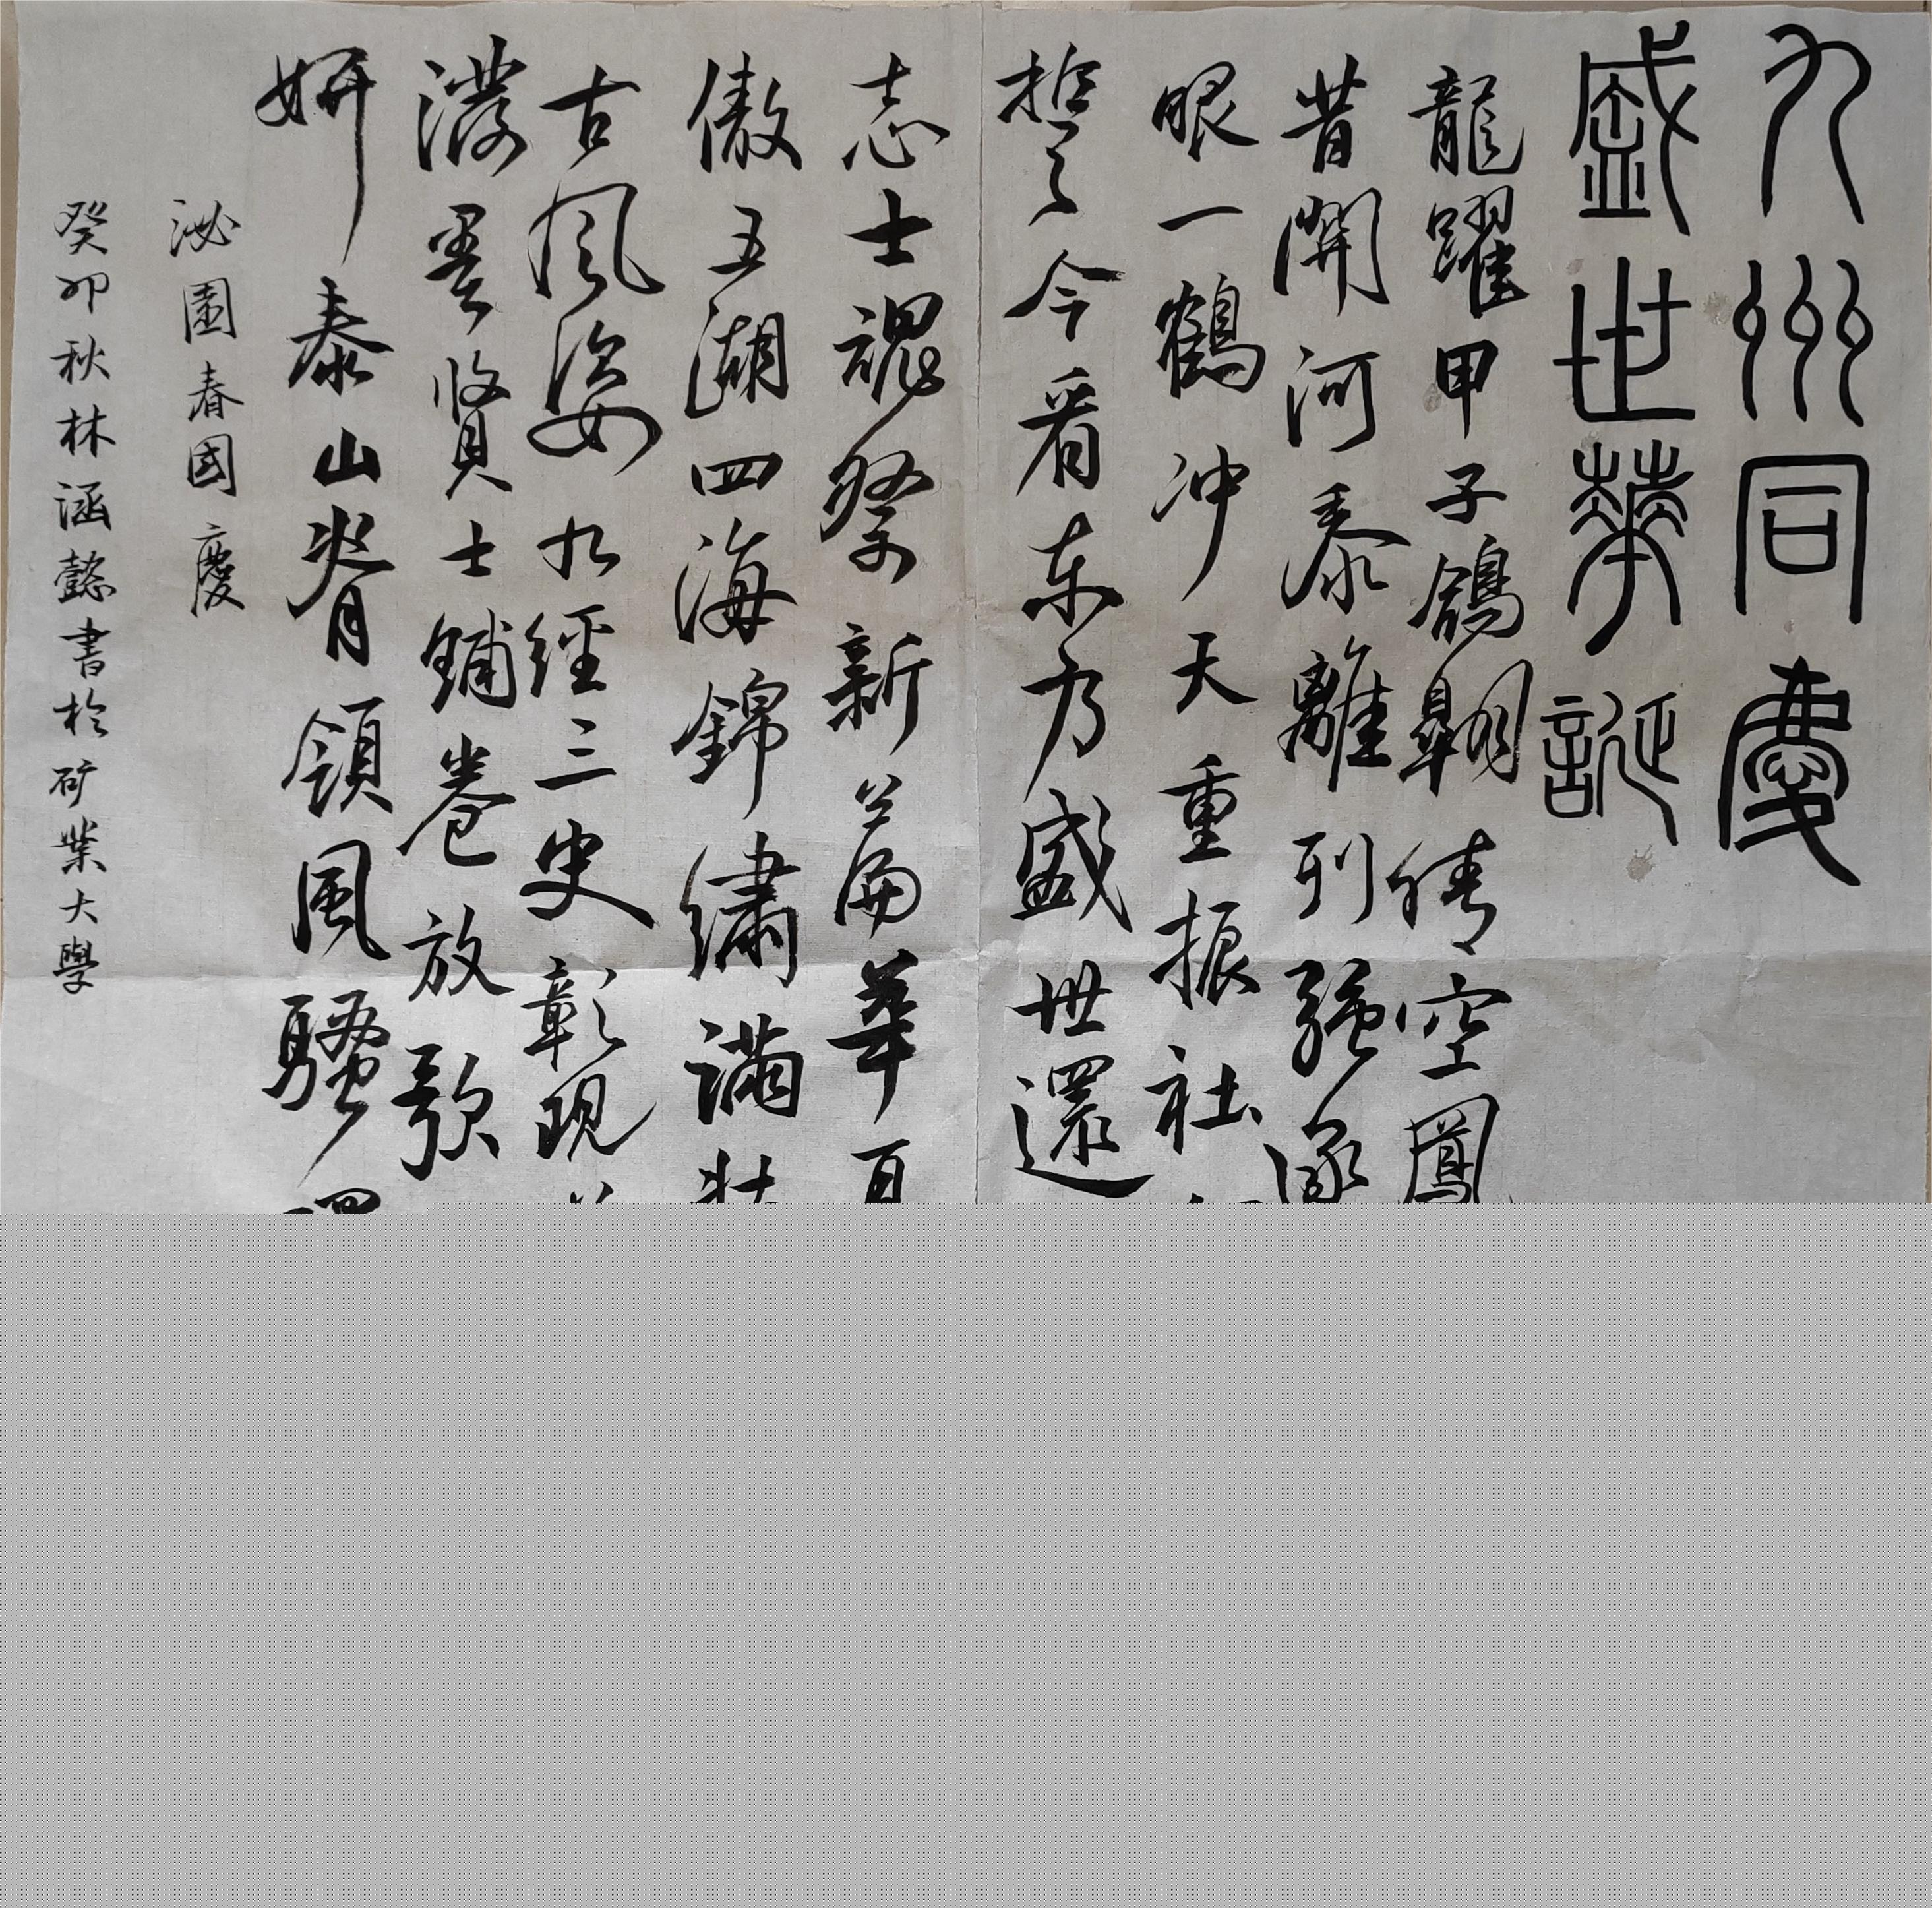 九州同慶
盛世華誕
龍躍甲子鴿翱情空鳳
昔開河泰離列强逐
眼一鶴冲天重振社
哲今看东方盛世還
志士魂祭新篇華百
傲五湖四海錦繡滿壯
古風姿九經三史彰現
濃墨賢士鋪卷放歌
妍泰山脊領風騷
沁園春國慶
癸卯秋林涵懿書於矿業大學